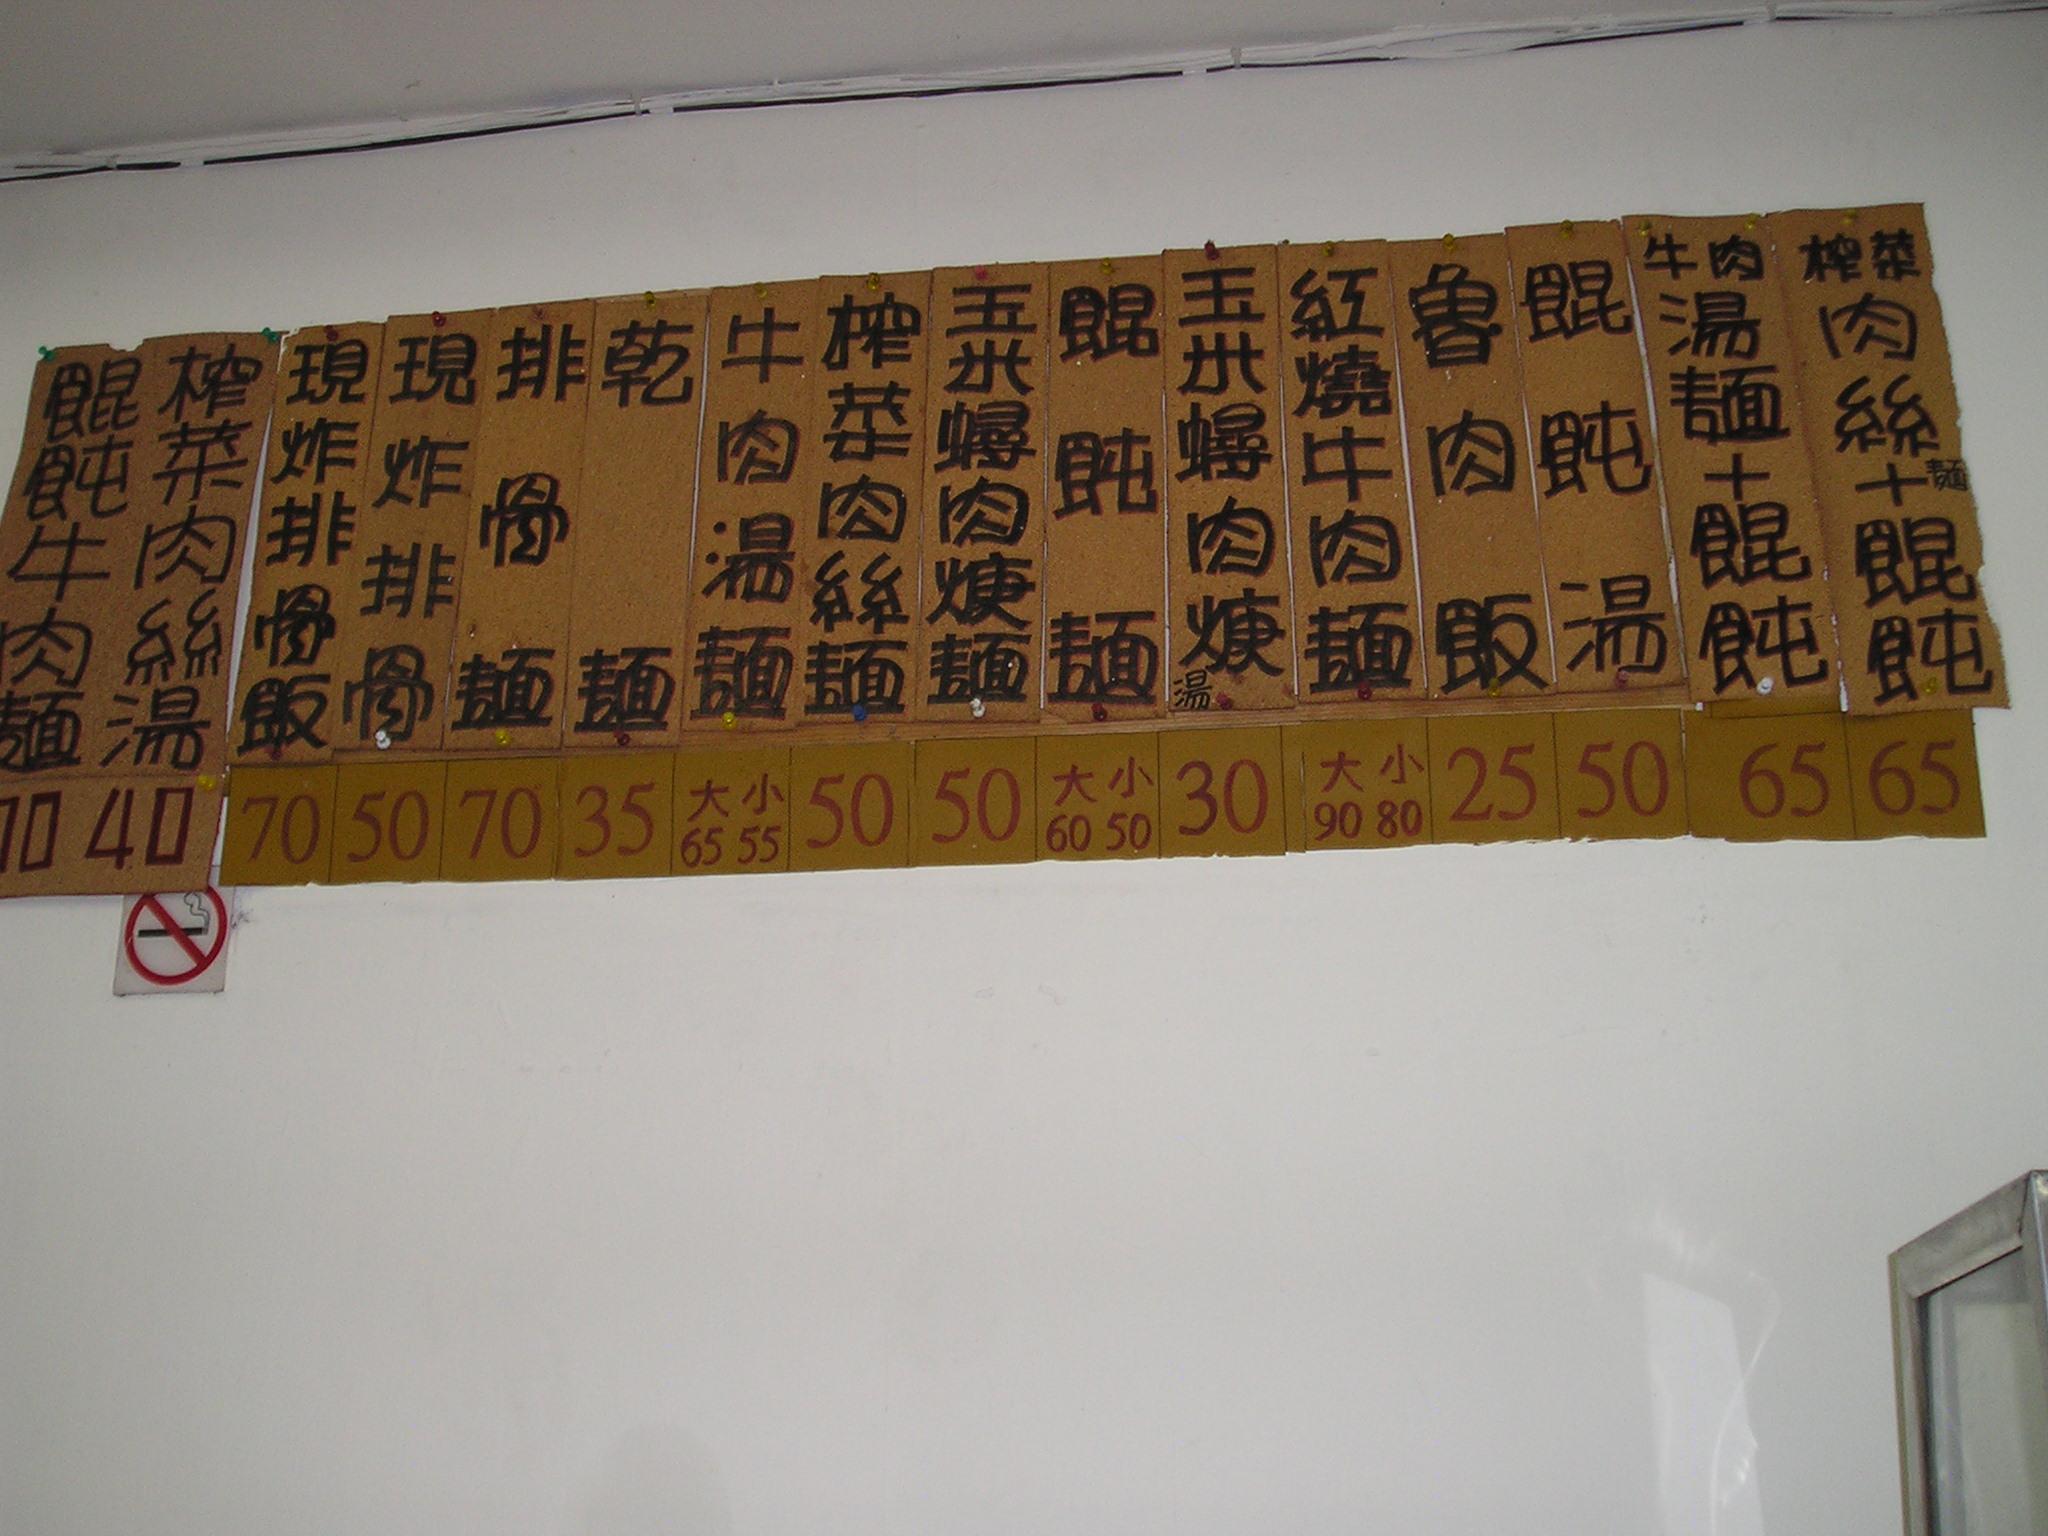 榨菜肉絲麵+餛飩
65
牛肉湯麵+餛飩
65
餛飩湯
50
魯肉飯
25
紅燒牛肉麵
大 小
90 80
玉米蟳肉焿湯
30
餛飩麵
大 小
60 50
玉米蟳肉焿麵
50
榨菜肉絲麵
50
牛肉湯麵
大 小
65 55
乾麵
35
排骨麵
70
現炸排骨
50
現炸排骨飯
70
榨菜肉絲湯
40
餛飩牛肉麵